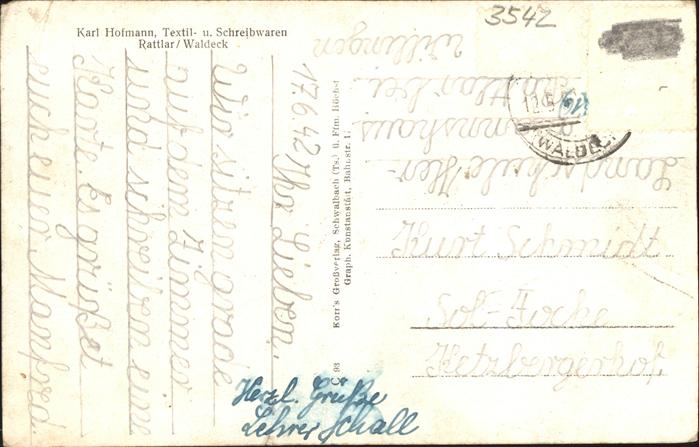 3542
Karl Hofmann, Textil- u. Schreibwaren
Rattlar/Waldeck
17.6.42 Ihr Lieben.
Wir sitzen grade
auf dem Zimmer
und schreiben eine
Karte. Es grüßt
euch euer Manfred
Herzl. Grüße
Lehrer Schall
C 93
Korr's Großverlag, Schwalbach (Ts.) ü. Ffm. Höchst
Graph. Kunstanstalt, Bahnstr. 1
(WALDECK)
Kurt Schmidt
Hetzbergerhof
Landschule Her-
Rattlar bei
Willingen